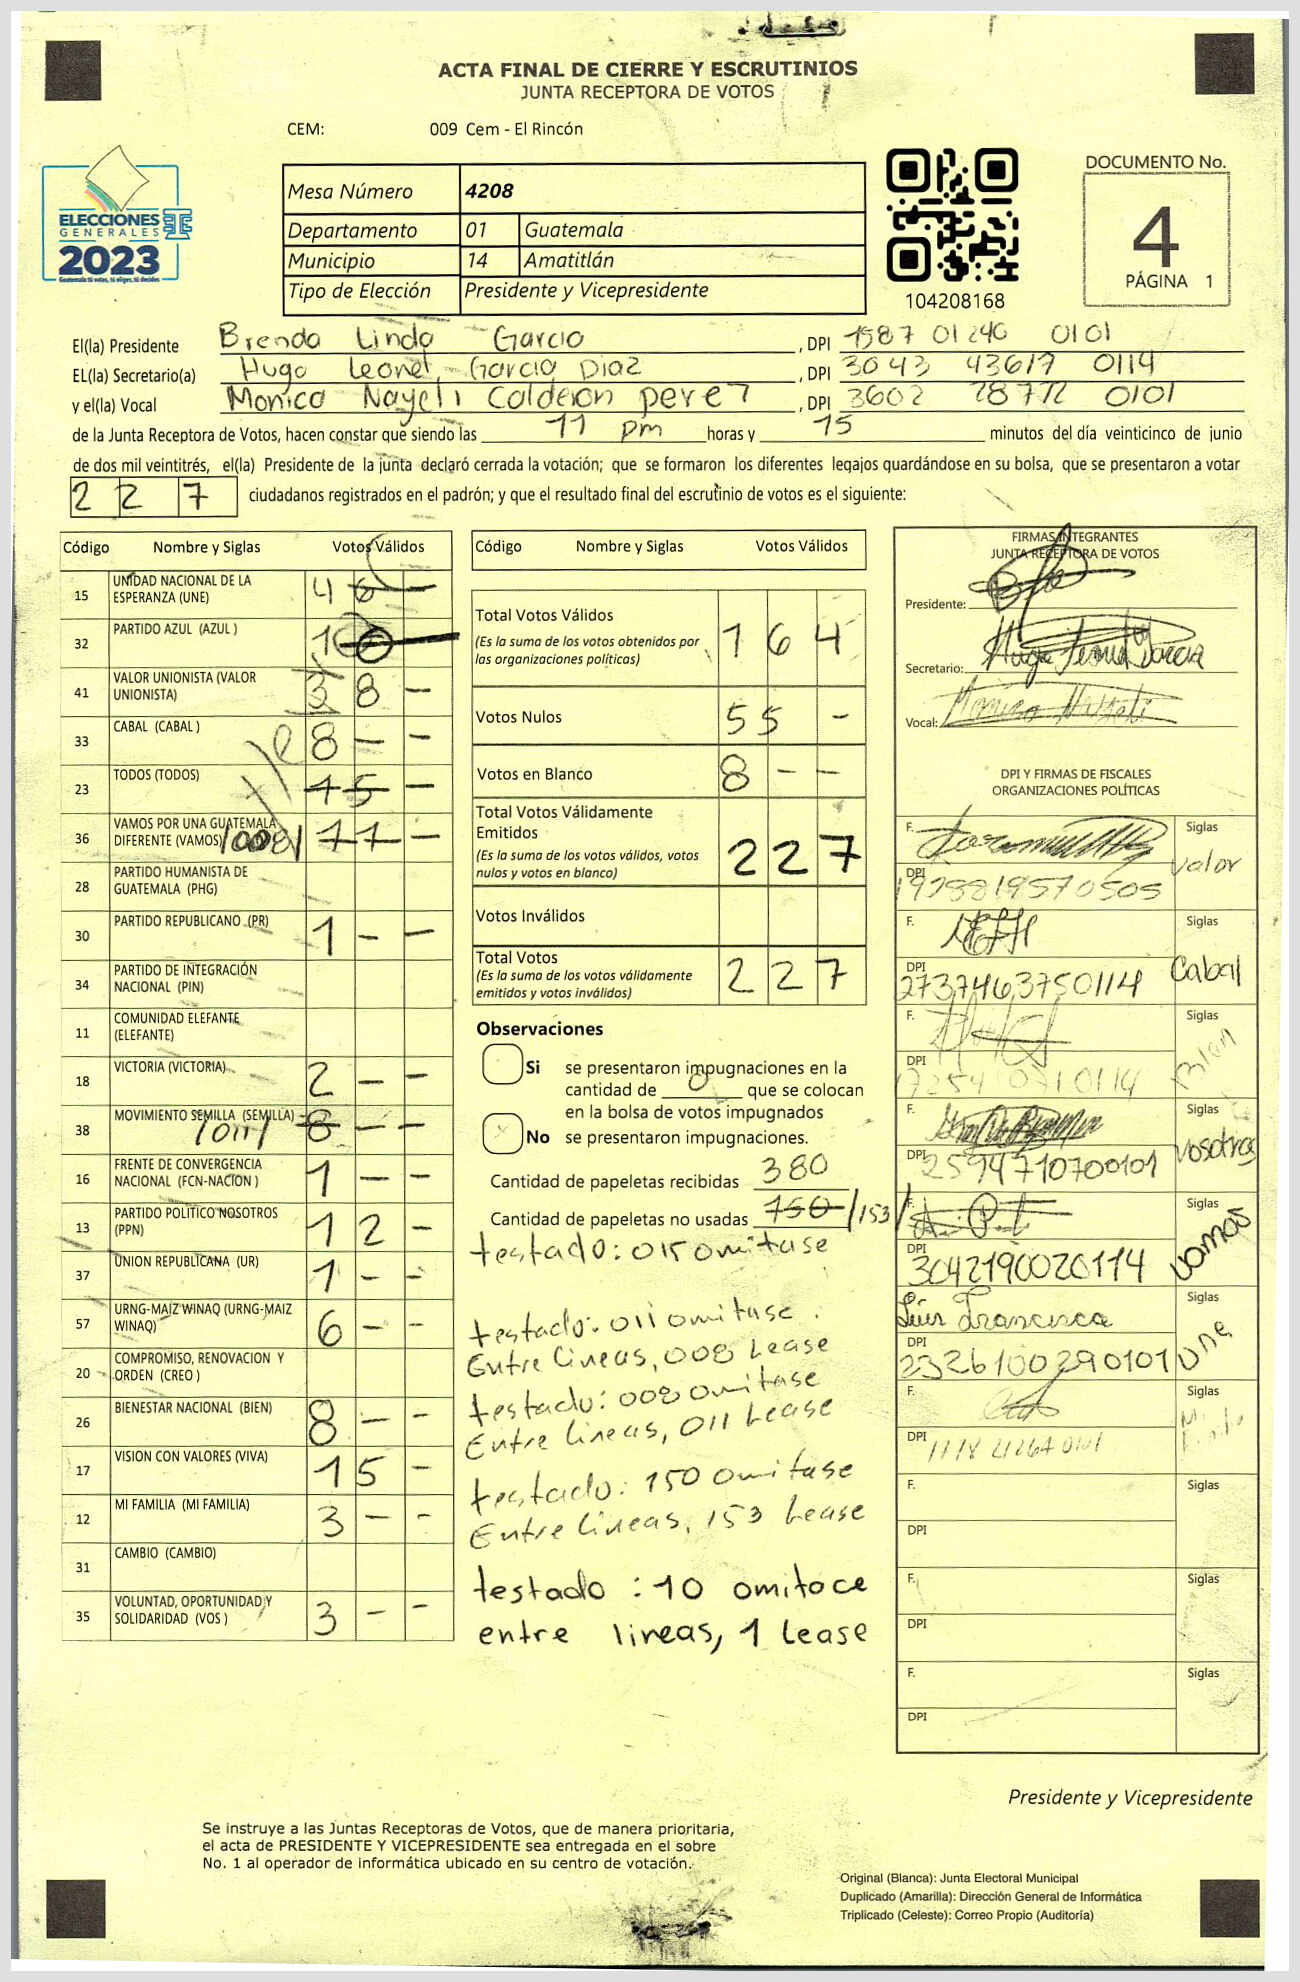 ACTA FINAL DE CIERRE Y ESCRUTINIOS
JUNTA RECEPTORA DE VOTOS
CEM: 009 Cem - El Rincón
ELECCIONES
GENERALES
2023
Guatemala tú votas, tú eliges, tú decides
Mesa Número 4208
Departamento 01 Guatemala
Municipio 14 Amatitlán
Tipo de Elección Presidente y Vicepresidente
104208168
DOCUMENTO No.
4
PÁGINA 1
El(la) Presidente Brenda Linda Garcia , DPI 1587 01240 0101
EL(la) Secretario(a) Hugo Leonel Garcia Diaz , DPI 3043 43617 0114
y el(la) Vocal Monica Nayeli Calderon perez , DPI 3602 28772 0101
de la Junta Receptora de Votos, hacen constar que siendo las 11 pm horas y 15 minutos del día veinticinco de junio
de dos mil veintitrés, el(la) Presidente de la junta declaró cerrada la votación; que se formaron los diferentes legajos guardándose en su bolsa, que se presentaron a votar
2 2 7 ciudadanos registrados en el padrón; y que el resultado final del escrutinio de votos es el siguiente:
Código Nombre y Siglas Votos Válidos
15 UNIDAD NACIONAL DE LA ESPERANZA (UNE) 4 6 —
32 PARTIDO AZUL (AZUL ) 1
41 VALOR UNIONISTA (VALOR UNIONISTA) 3 8 —
33 CABAL (CABAL ) 8 — —
23 TODOS (TODOS) 1 5 —
36 VAMOS POR UNA GUATEMALA DIFERENTE (VAMOS) /008/ 1 1 —
28 PARTIDO HUMANISTA DE GUATEMALA (PHG)
30 PARTIDO REPUBLICANO (PR) 1 — —
34 PARTIDO DE INTEGRACIÓN NACIONAL (PIN)
11 COMUNIDAD ELEFANTE (ELEFANTE)
18 VICTORIA (VICTORIA) 2 — —
38 MOVIMIENTO SEMILLA (SEMILLA) /011/ 8 — —
16 FRENTE DE CONVERGENCIA NACIONAL (FCN-NACION ) 1 — —
13 PARTIDO POLITICO NOSOTROS (PPN) 1 2 —
37 UNION REPUBLICANA (UR) 1 — —
57 URNG-MAIZ WINAQ (URNG-MAIZ WINAQ) 6 — —
20 COMPROMISO, RENOVACION Y ORDEN (CREO )
26 BIENESTAR NACIONAL (BIEN) 8 — —
17 VISION CON VALORES (VIVA) 1 5 —
12 MI FAMILIA (MI FAMILIA) 3 — —
31 CAMBIO (CAMBIO)
35 VOLUNTAD, OPORTUNIDAD Y SOLIDARIDAD (VOS ) 3 — —
Código Nombre y Siglas Votos Válidos
Total Votos Válidos 1 6 4
(Es la suma de los votos obtenidos por
las organizaciones políticas)
Votos Nulos 5 5 —
Votos en Blanco 8 — —
Total Votos Válidamente
Emitidos 2 2 7
(Es la suma de los votos válidos, votos
nulos y votos en blanco)
Votos Inválidos
Total Votos 2 2 7
(Es la suma de los votos válidamente
emitidos y votos inválidos)
Observaciones
Si se presentaron impugnaciones en la
cantidad de 0 que se colocan
en la bolsa de votos impugnados
No se presentaron impugnaciones.
Cantidad de papeletas recibidas 380
Cantidad de papeletas no usadas 150 /153/
testado: 015 omitase
testado: 011 omitase.
Entre lineas, 008 Lease
testado: 008 omitase
Entre lineas, 011 Lease
testado: 150 omitase
Entre lineas, 153 Lease
testado : 10 omitoce
entre lineas, 1 Lease
FIRMAS INTEGRANTES
JUNTA RECEPTORA DE VOTOS
Presidente:
Secretario:
Vocal:
DPI Y FIRMAS DE FISCALES
ORGANIZACIONES POLÍTICAS
F. Siglas
Valor
DPI 1928819570505
F. Siglas
Cabal
DPI 2737463750114
F. Siglas
Bien
DPI
F. Siglas
Nosotros
DPI 2594710700101
F. Siglas
Vamos
DPI 3042190020114
Siglas
Luis Francisco
Une
DPI 2326100290101
F. Siglas
DPI
F. Siglas
DPI
F. Siglas
DPI
F. Siglas
DPI
Presidente y Vicepresidente
Se instruye a las Juntas Receptoras de Votos, que de manera prioritaria,
el acta de PRESIDENTE Y VICEPRESIDENTE sea entregada en el sobre
No. 1 al operador de informática ubicado en su centro de votación.
Original (Blanca): Junta Electoral Municipal
Duplicado (Amarilla): Dirección General de Informática
Triplicado (Celeste): Correo Propio (Auditoría)